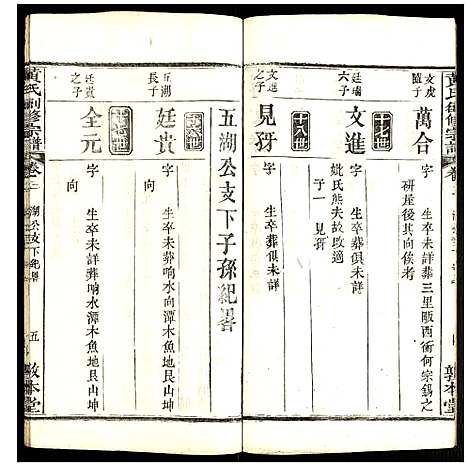 黃氏創修宗譜
文虎
隨子
萬合
字
生卒未詳葬三里畈西衝何宗錫之
研屋後其向俟考
十七世
廷瑞
六子
文進
字
生卒葬俱未詳
妣氏熊夫故改適
子一 見犽
十八世
文進
之子
見犽
字
生卒葬俱未詳
五湖公支下子孫紀畧
十六世
五湖
長子
廷貴
字
生卒未詳葬响水潭木魚地艮山坤
向
十七世
廷貴
之子
全元
字
生卒未詳葬响水潭木魚地艮山坤
向
黃氏創修宗譜
卷二
湖公支下紀畧
五
敦本堂
敦本堂